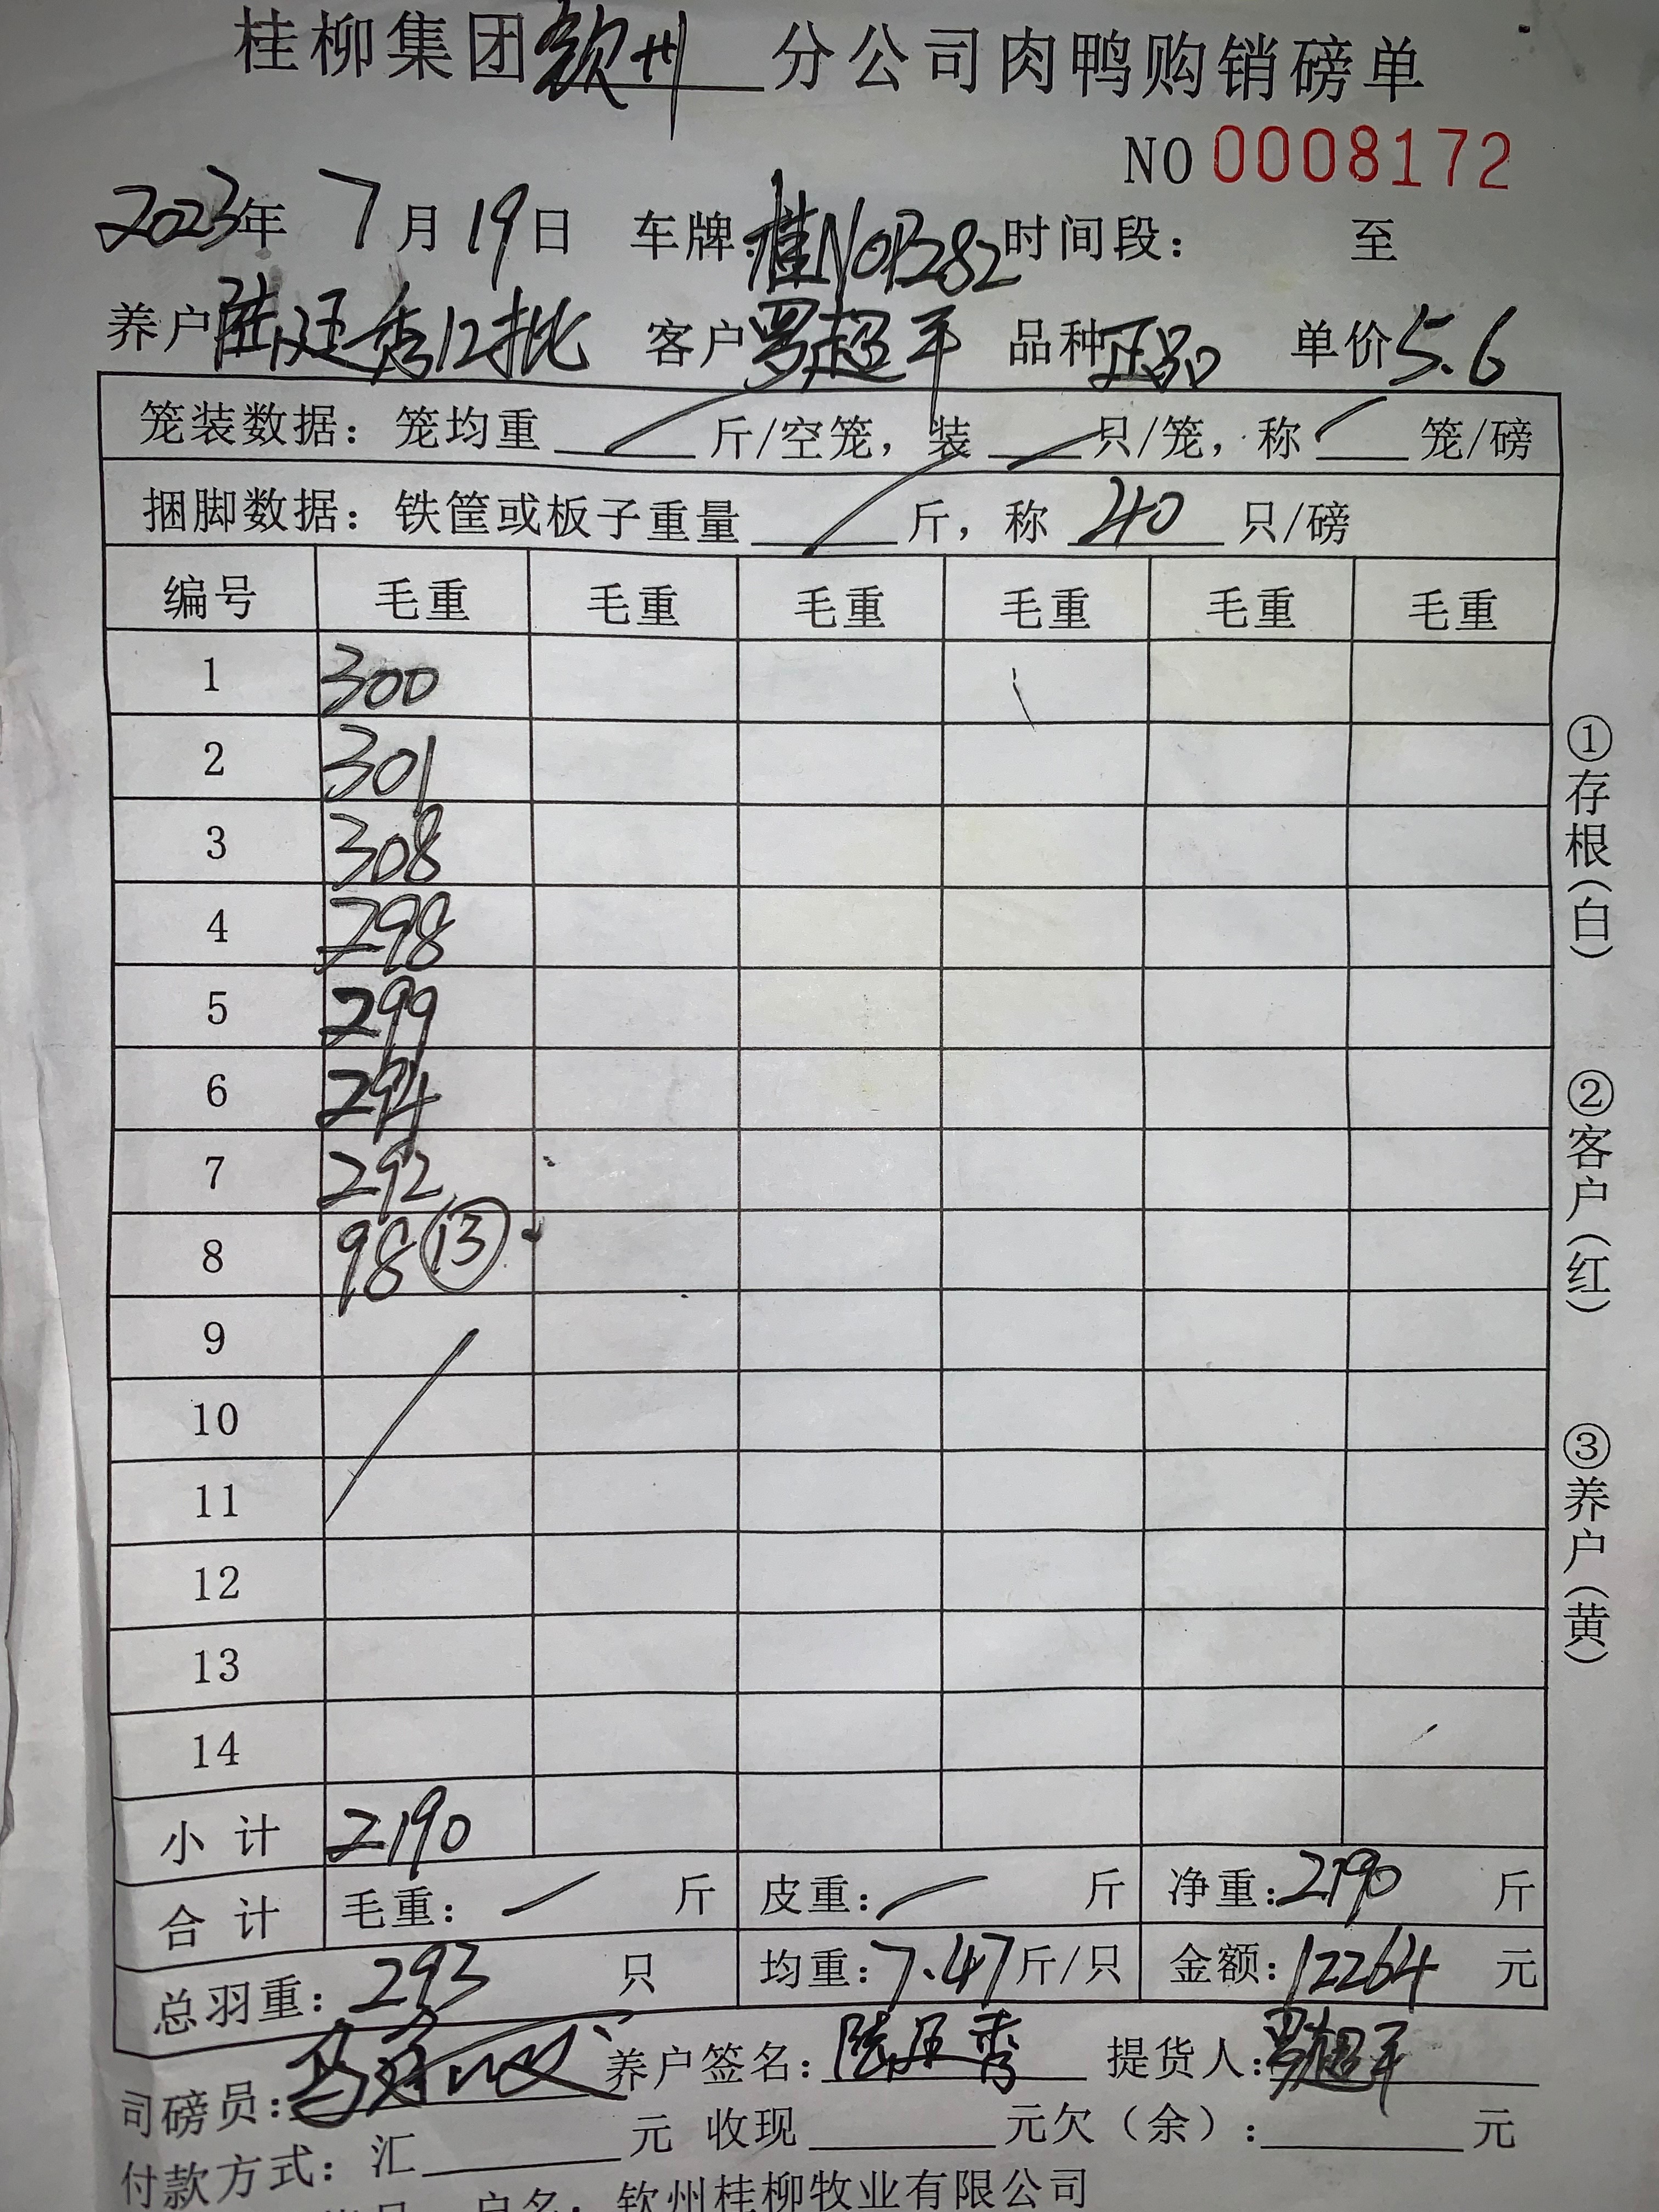 桂柳集团钦州分公司肉鸭购销磅单
NO 0008172
2023年 7月19日 车牌：桂N0B282 时间段： 至
养户陆廷秀12批 客户罗超平 品种正品 单价5.6
笼装数据：笼均重 / 斤/空笼，装 / 只/笼，称 / 笼/磅
捆脚数据：铁筐或板子重量 / 斤，称 40 只/磅
编号 毛重 毛重 毛重 毛重 毛重 毛重
1 300
2 301
3 308
4 298
5 299
6 294
7 292
8 98 ⑬
9
10
11
12
13
14
小计 2190
合计 毛重： / 斤 皮重： / 斤 净重：2190 斤
总羽重：293 只 均重：7.47斤/只 金额：12264 元
司磅员： 养户签名：陆廷秀 提货人：罗超平
付款方式：汇 元 收现 元欠（余）： 元
户名：钦州桂柳牧业有限公司
①存根（白）
②客户（红）
③养户（黄）